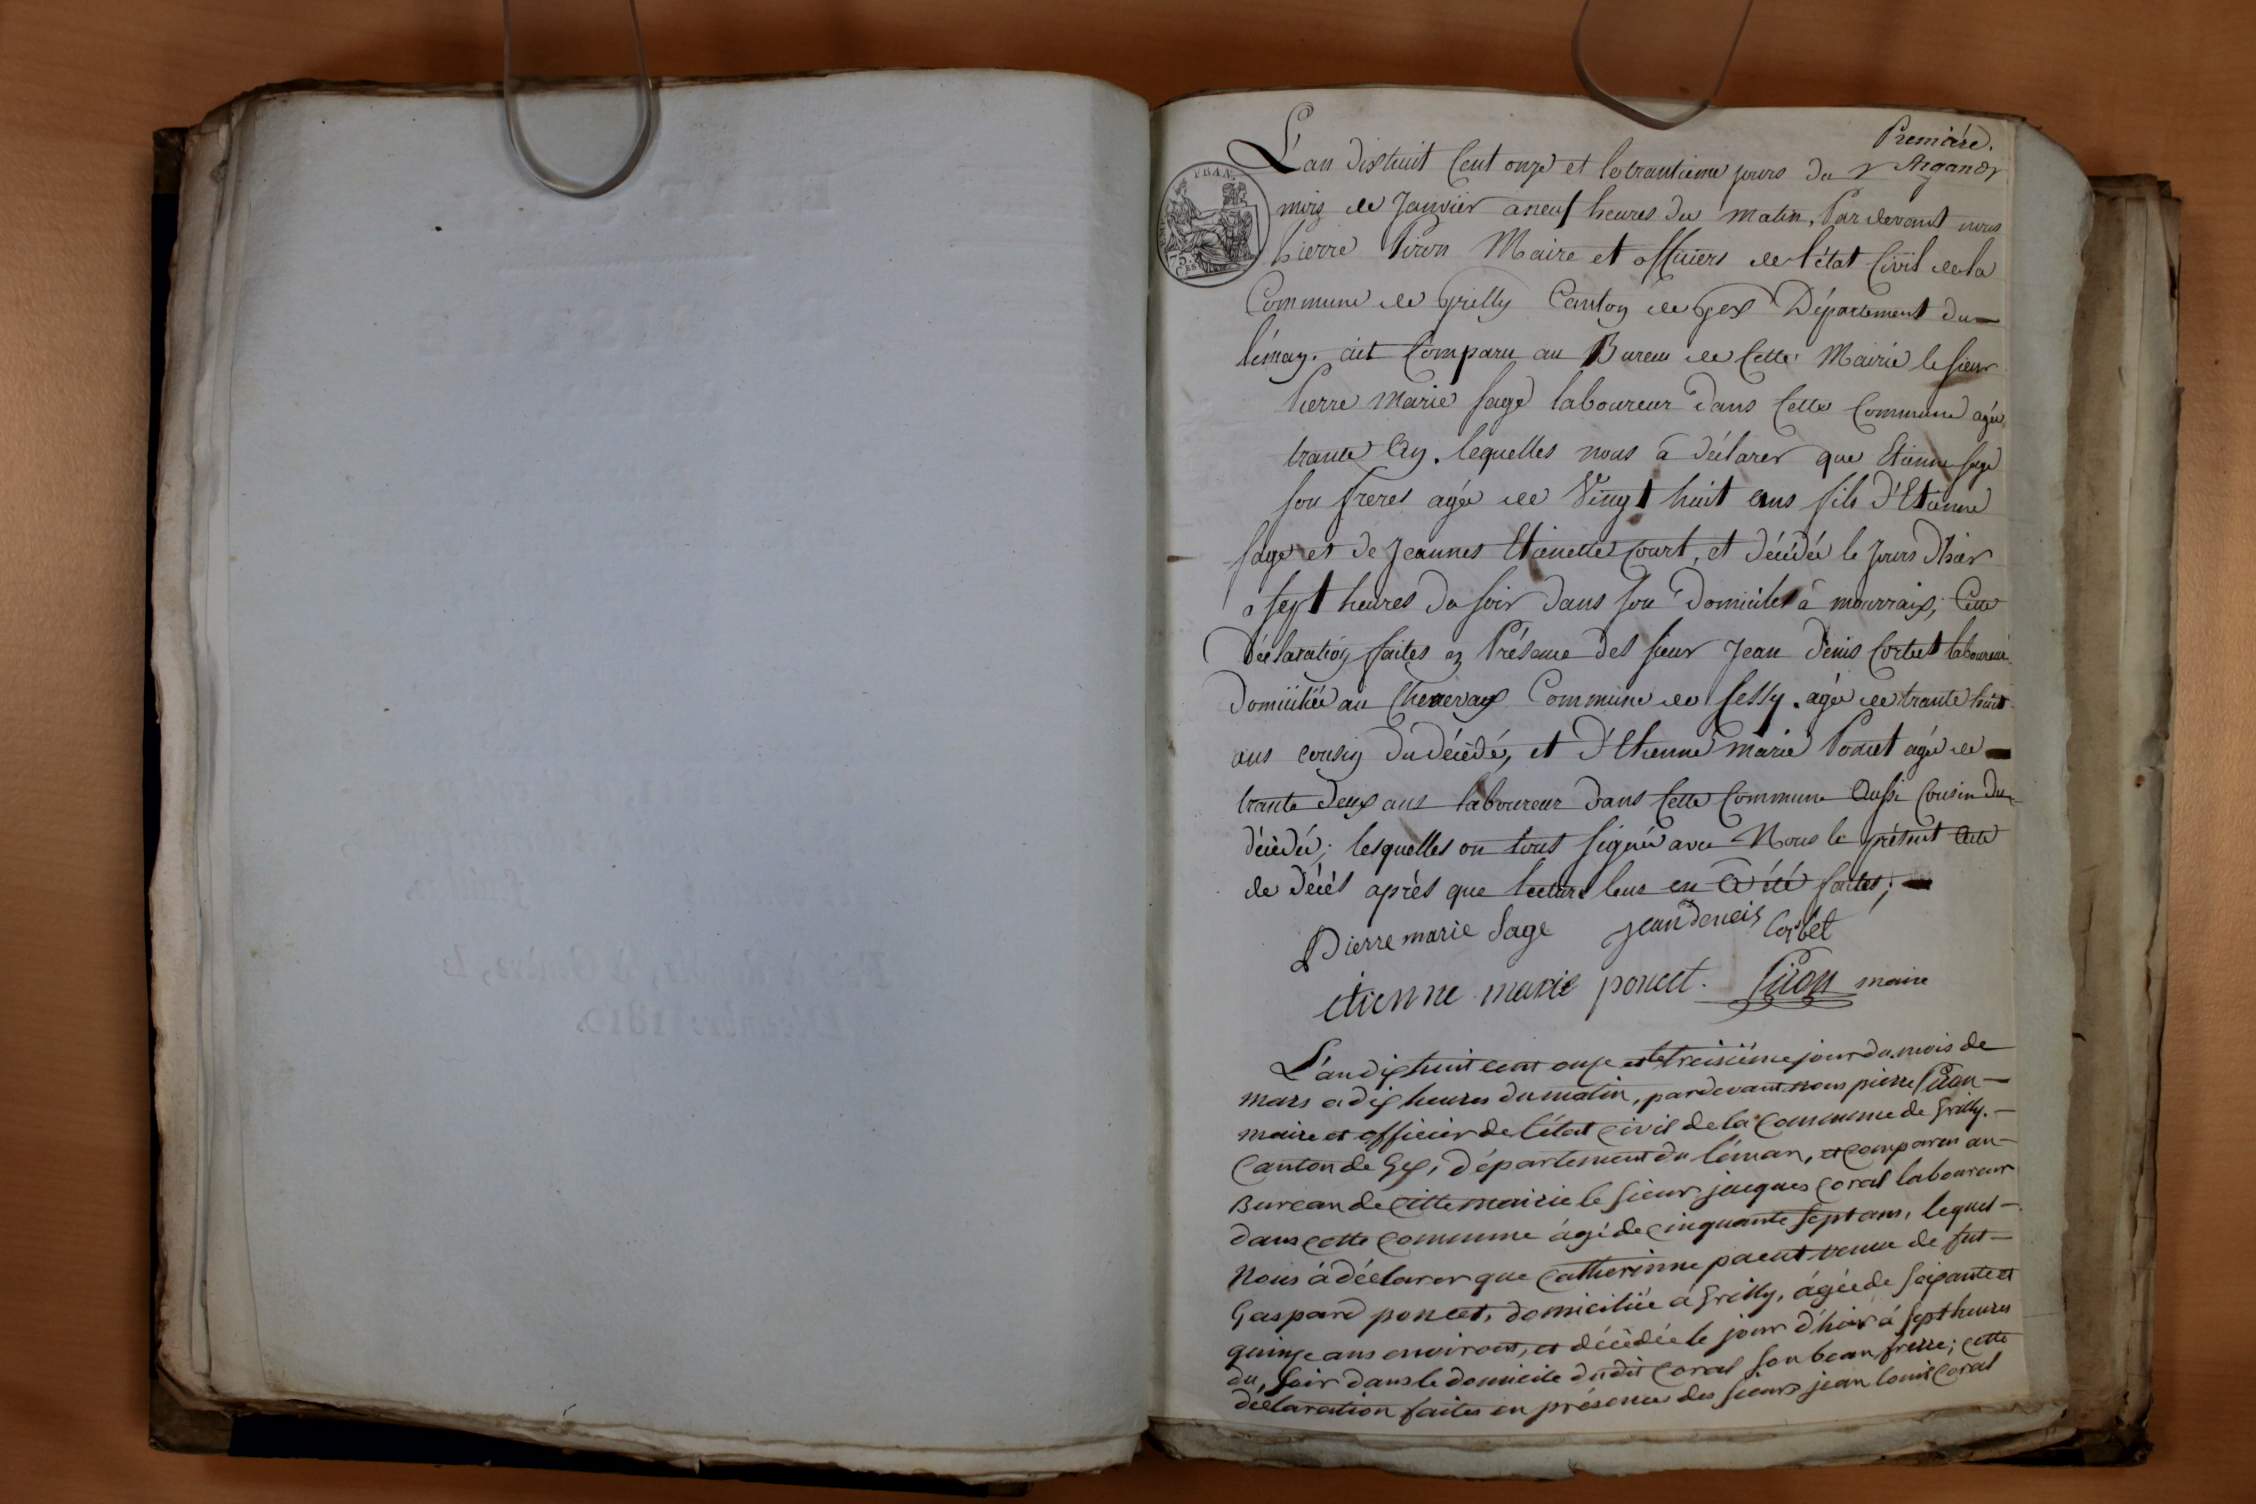 Premiére.
L'an dixhuit Cent onze et le trantieme jours du
mois de Janvier a neuf heures du matin, Par devant nous
Pierre Piron Maire et officiers de l'état Civil de la
Commune de Grilly Canton de Gex Département du
léman. ait Comparu au Bureau de Cette Mairie le sieur
Pierre Marie Sage laboureur dans Cette Commune agée
trante An. lequelles nous a déclarer que Etienne Sage
son freres agée de Vingt huit ans fils d'Etienne
Sage et de Jeannes Etienette Court, et décédée le Jours d'hier
a sept heures du soir dans son Domiciles à mourraix; Cette
Déclaration faites en Présence des sieur Jean Denis Corbet laboureur
Domiciliée au Chenevax Commune de Cessy. agée de trante huit
ans cousin du décédé, et d'Etienne Marie Poncet agée de
trante deux ans laboureur dans Cette Commune Aussi Cousin du
décédé; lesquelles on tous signée avec Nous le présent Acte
de décés aprés que lecture leus en A été faites;
Pierre marie Sage Jean Deneis Corbet
etienne marie poncet. Piron maire
L'an dix huit cent onze et le treisiéme jour du mois de
mars a dix heures du matin, pardevant nous pierre Piron
maire et officier de l'état Civil de la Commune de Grilly.
Canton de Gex, Département du léman, et Comparu au
Bureau de Cette mairie le sieur jacques Coral laboureur
dans cette Commune âgé de Cinquante sept ans, lequel
Nous à déclarer que Catherinne paent veuve de fut
Gaspard poncet, domiciliée à Grilly, âgée de soixante et
quinze ans environs, et décédée le jour d'hier à sept heures
du, soir dans le domicile dudit Coral son beau frere; cette
déclaration faites en présence des sieurs jean louis Coral